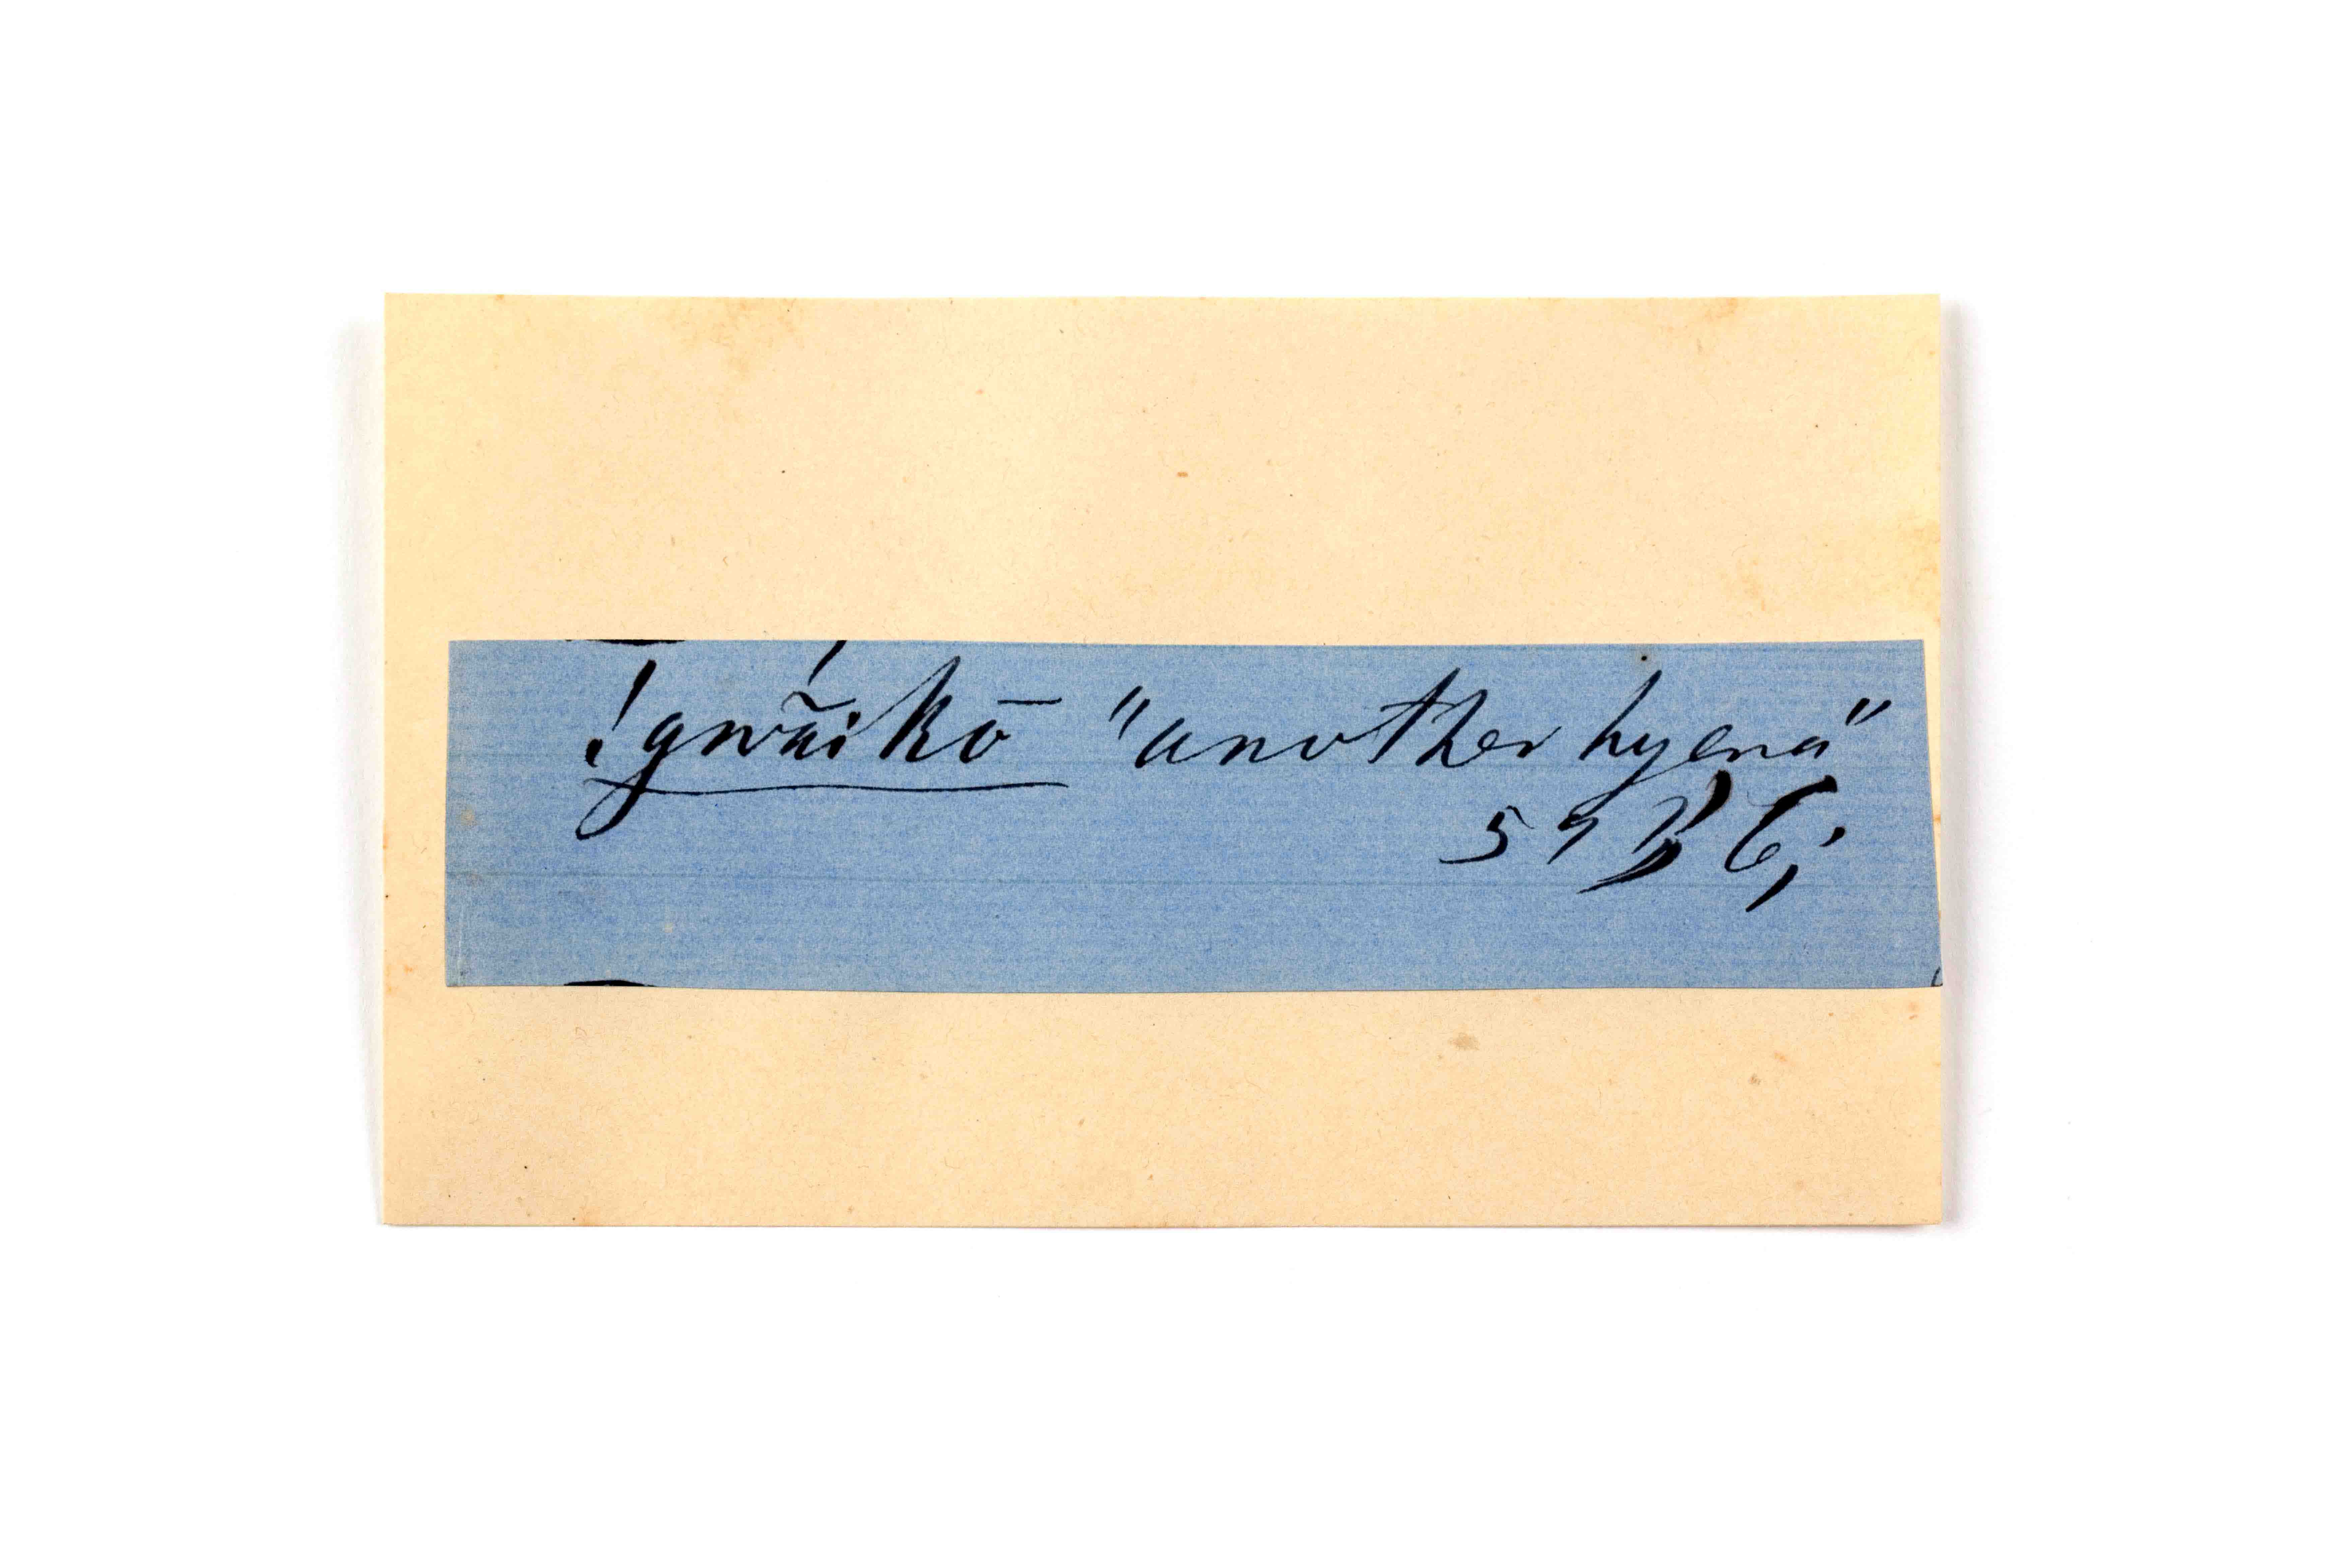 !gwãikō "another hyena"
59 B C;